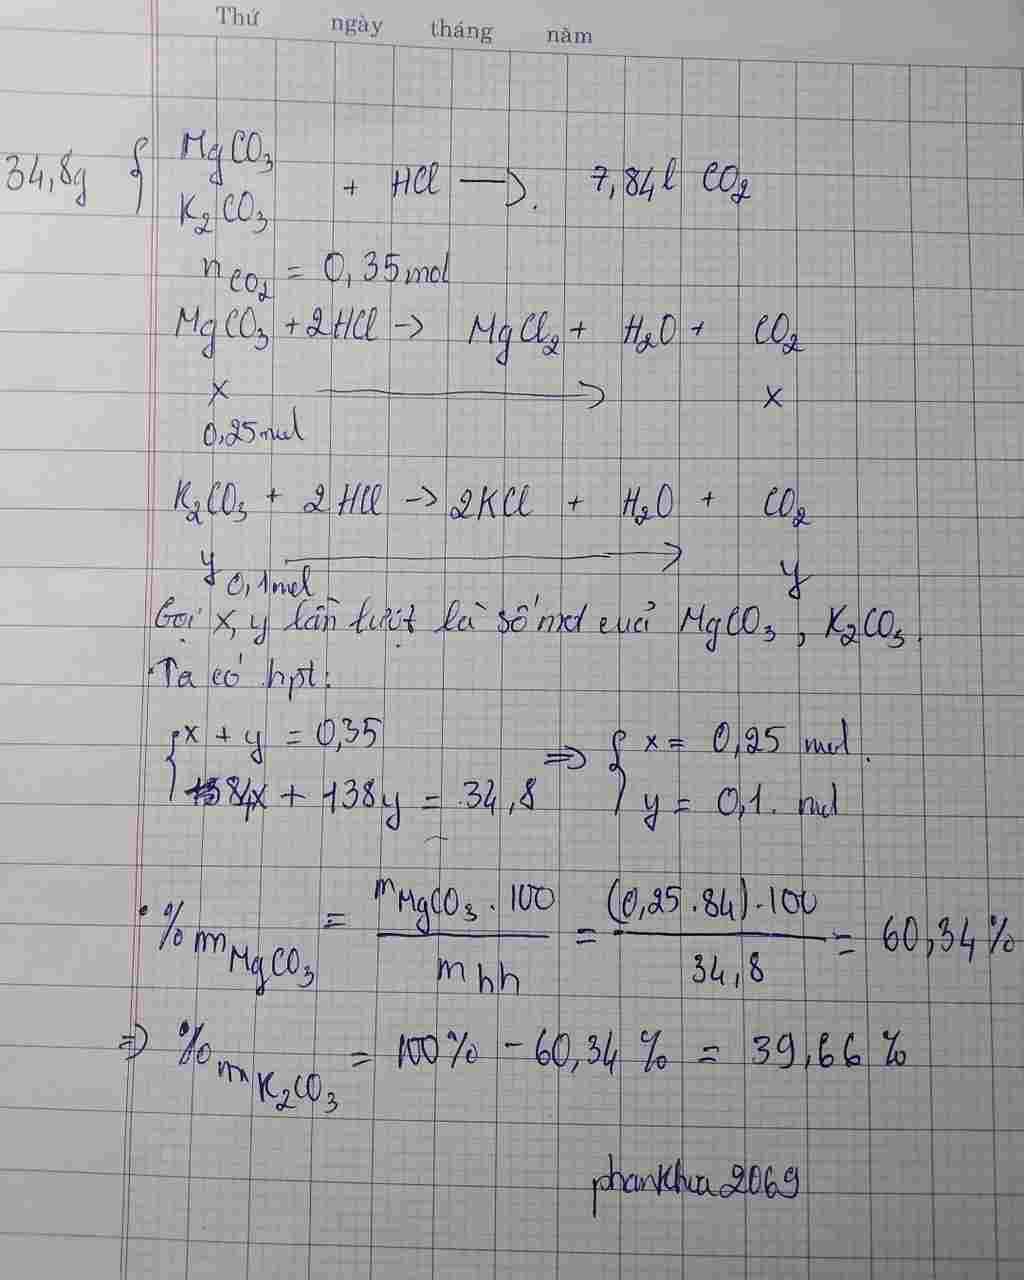 Thứ ngày tháng năm
34,8g { MgCO₃ K₂CO₃ + HCl → 7,84l CO₂
nCO₂ = 0,35 mol
MgCO₃ + 2HCl → MgCl₂ + H₂O + CO₂
x → x
0,25 mol
K₂CO₃ + 2HCl → 2KCl + H₂O + CO₂
y → y
0,1 mol
Gọi x, y lần lượt là số mol của MgCO₃, K₂CO₃.
Ta có hpt:
{ x + y = 0,35 ⇒ { x = 0,25 mol.
84x + 138y = 34,8 y = 0,1. mol
• %mMgCO₃ = mMgCO₃ . 100 / mhh = (0,25 . 84) . 100 / 34,8 = 60,34%
⇒ %mK₂CO₃ = 100% - 60,34% = 39,66%
phankhua2069